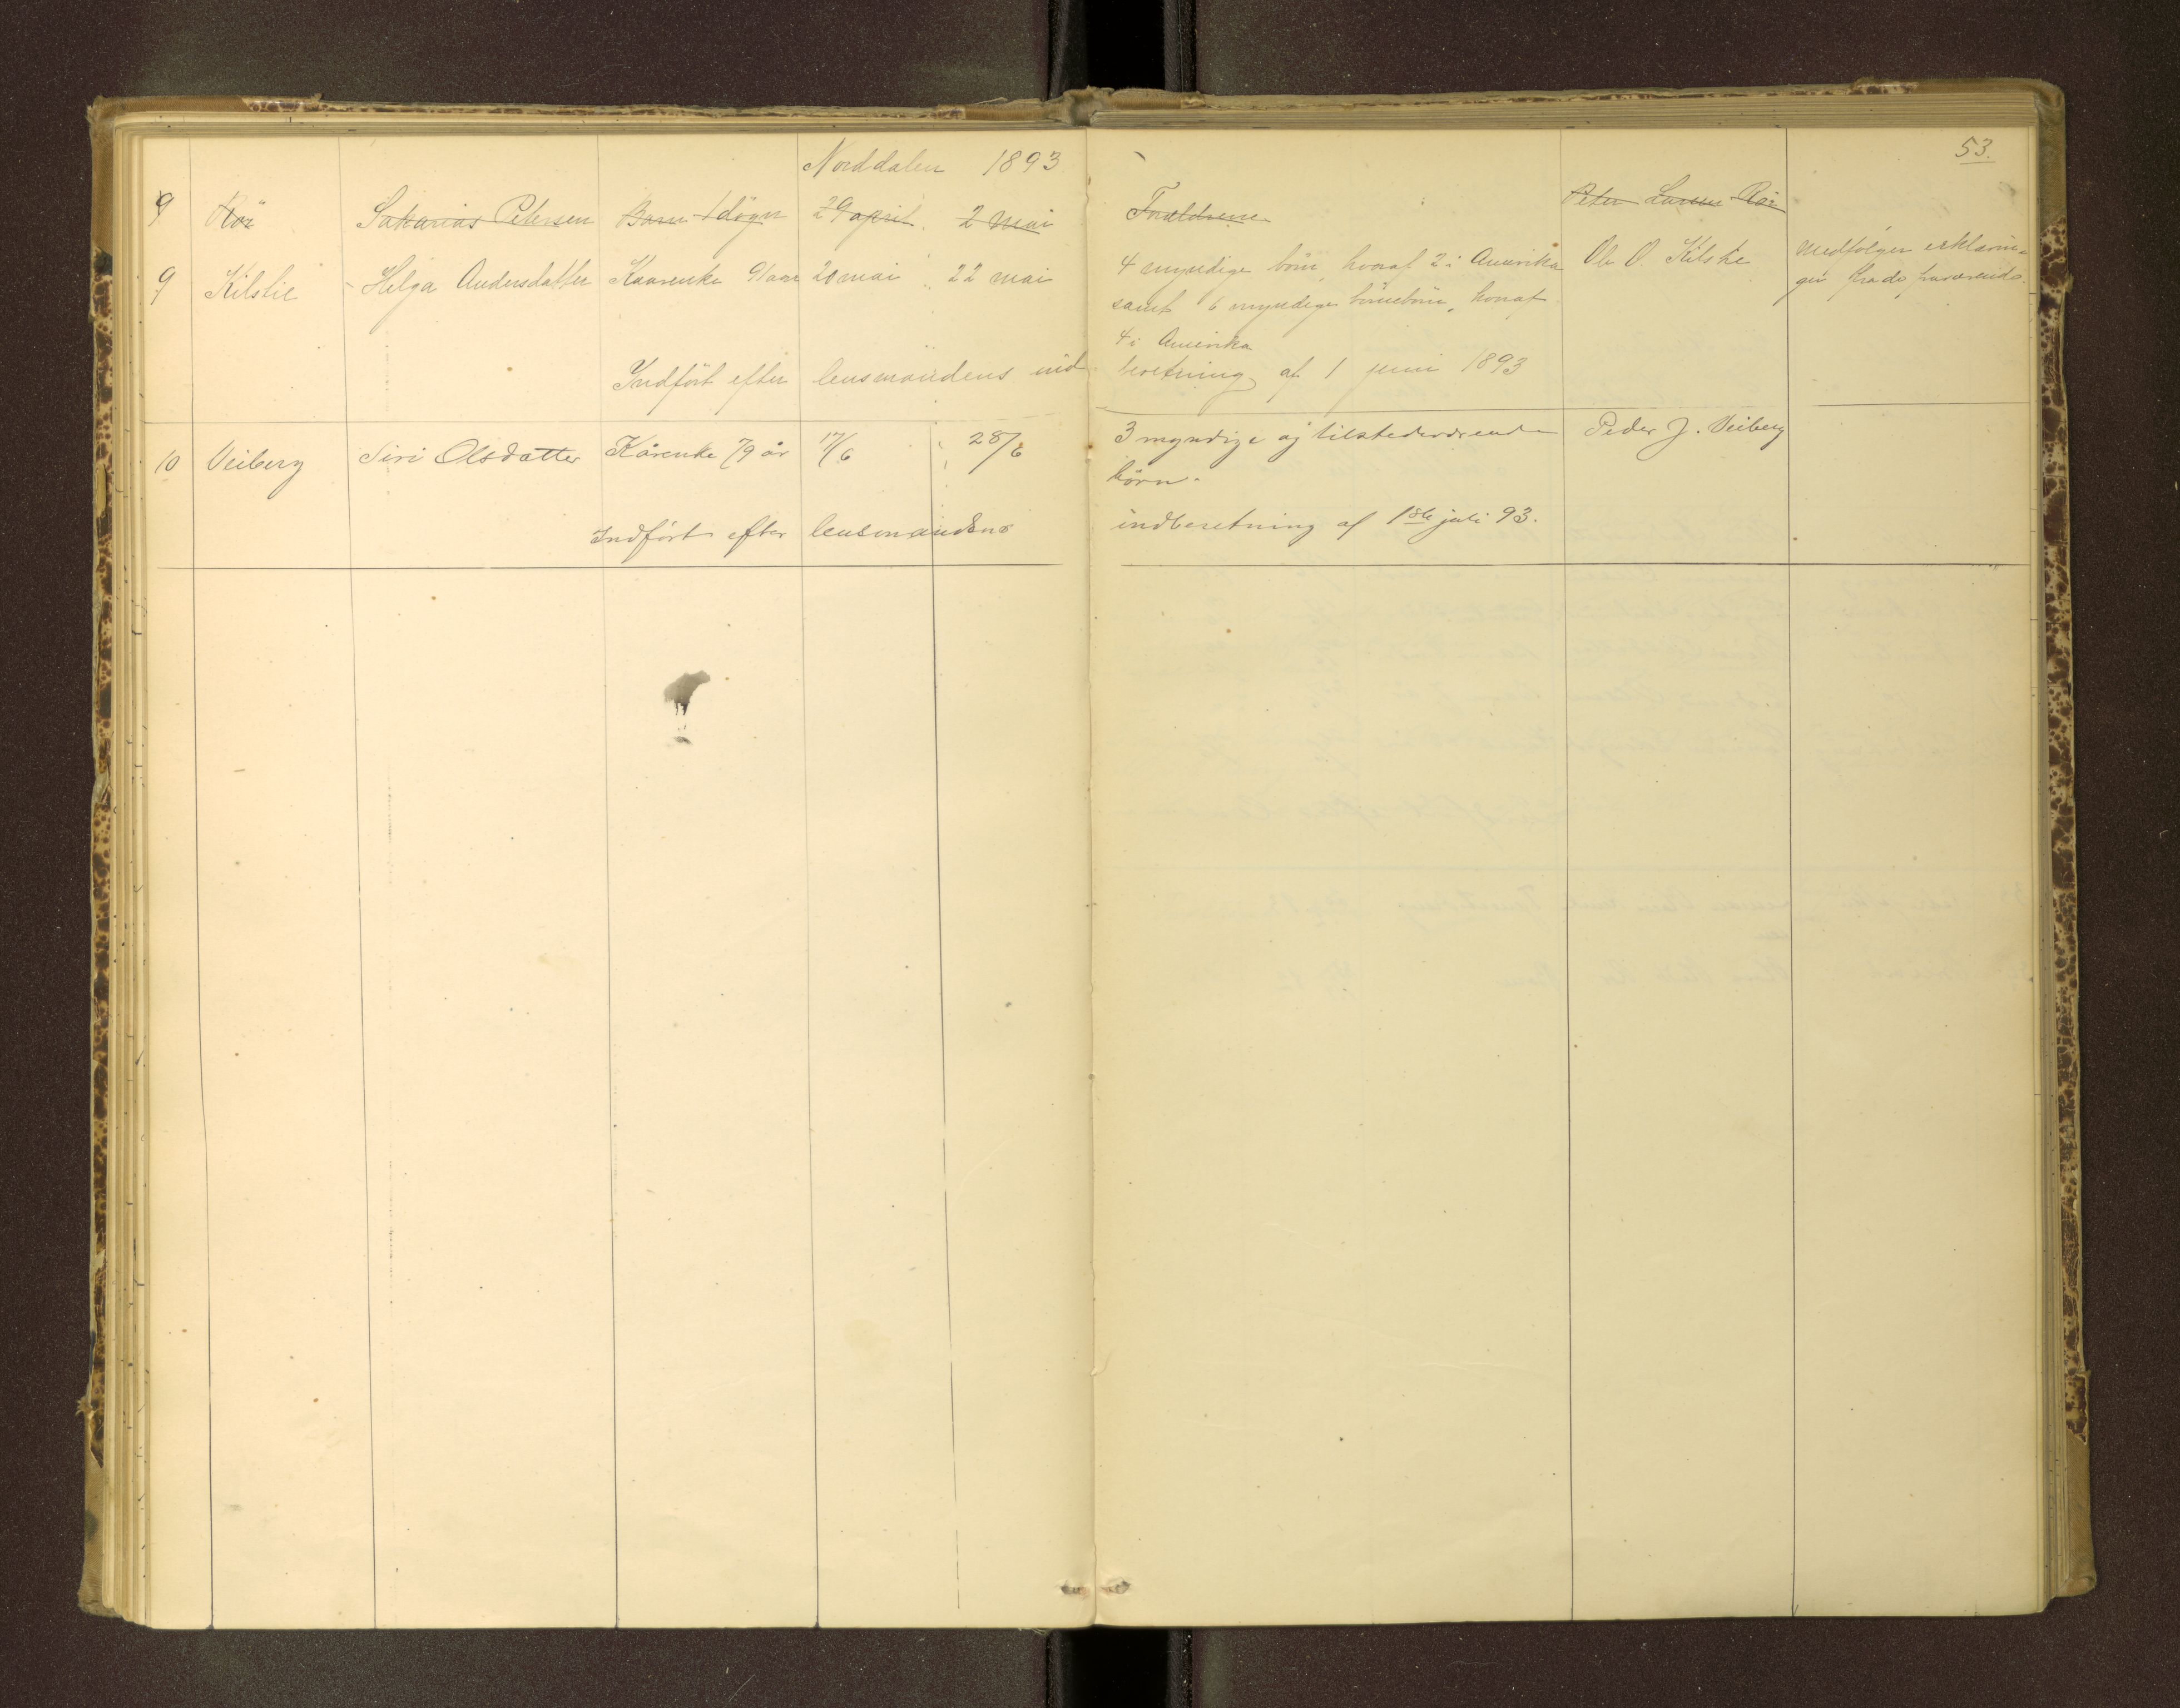 Norddalen 1893
53.
9 Röz Sakarias Petersen Barn 1 dögn 29 april 2 mai Forældrene Peter Larsen Röz
9 Kilstie Helga Andersdatter Kaarenke 91 aar 20 mai 22 mai 4 myndige börn, hvoraf 2 i Amerika Ole O Kilstie Medfölger erklærin-
samt 6 myndige börnebörn, hvoraf ger fra de
4 i Amerika
Indfört efter lensmandens ind beretning af 1 juni 1893
10 Veiberg Siri Olsdatter Kårenke 79 år 17/6 28/6 3 myndige og tilstedeværende Peder J. Veiberg
börn.
Indfört efter lensmandens indberetning af 1ste juli 93.